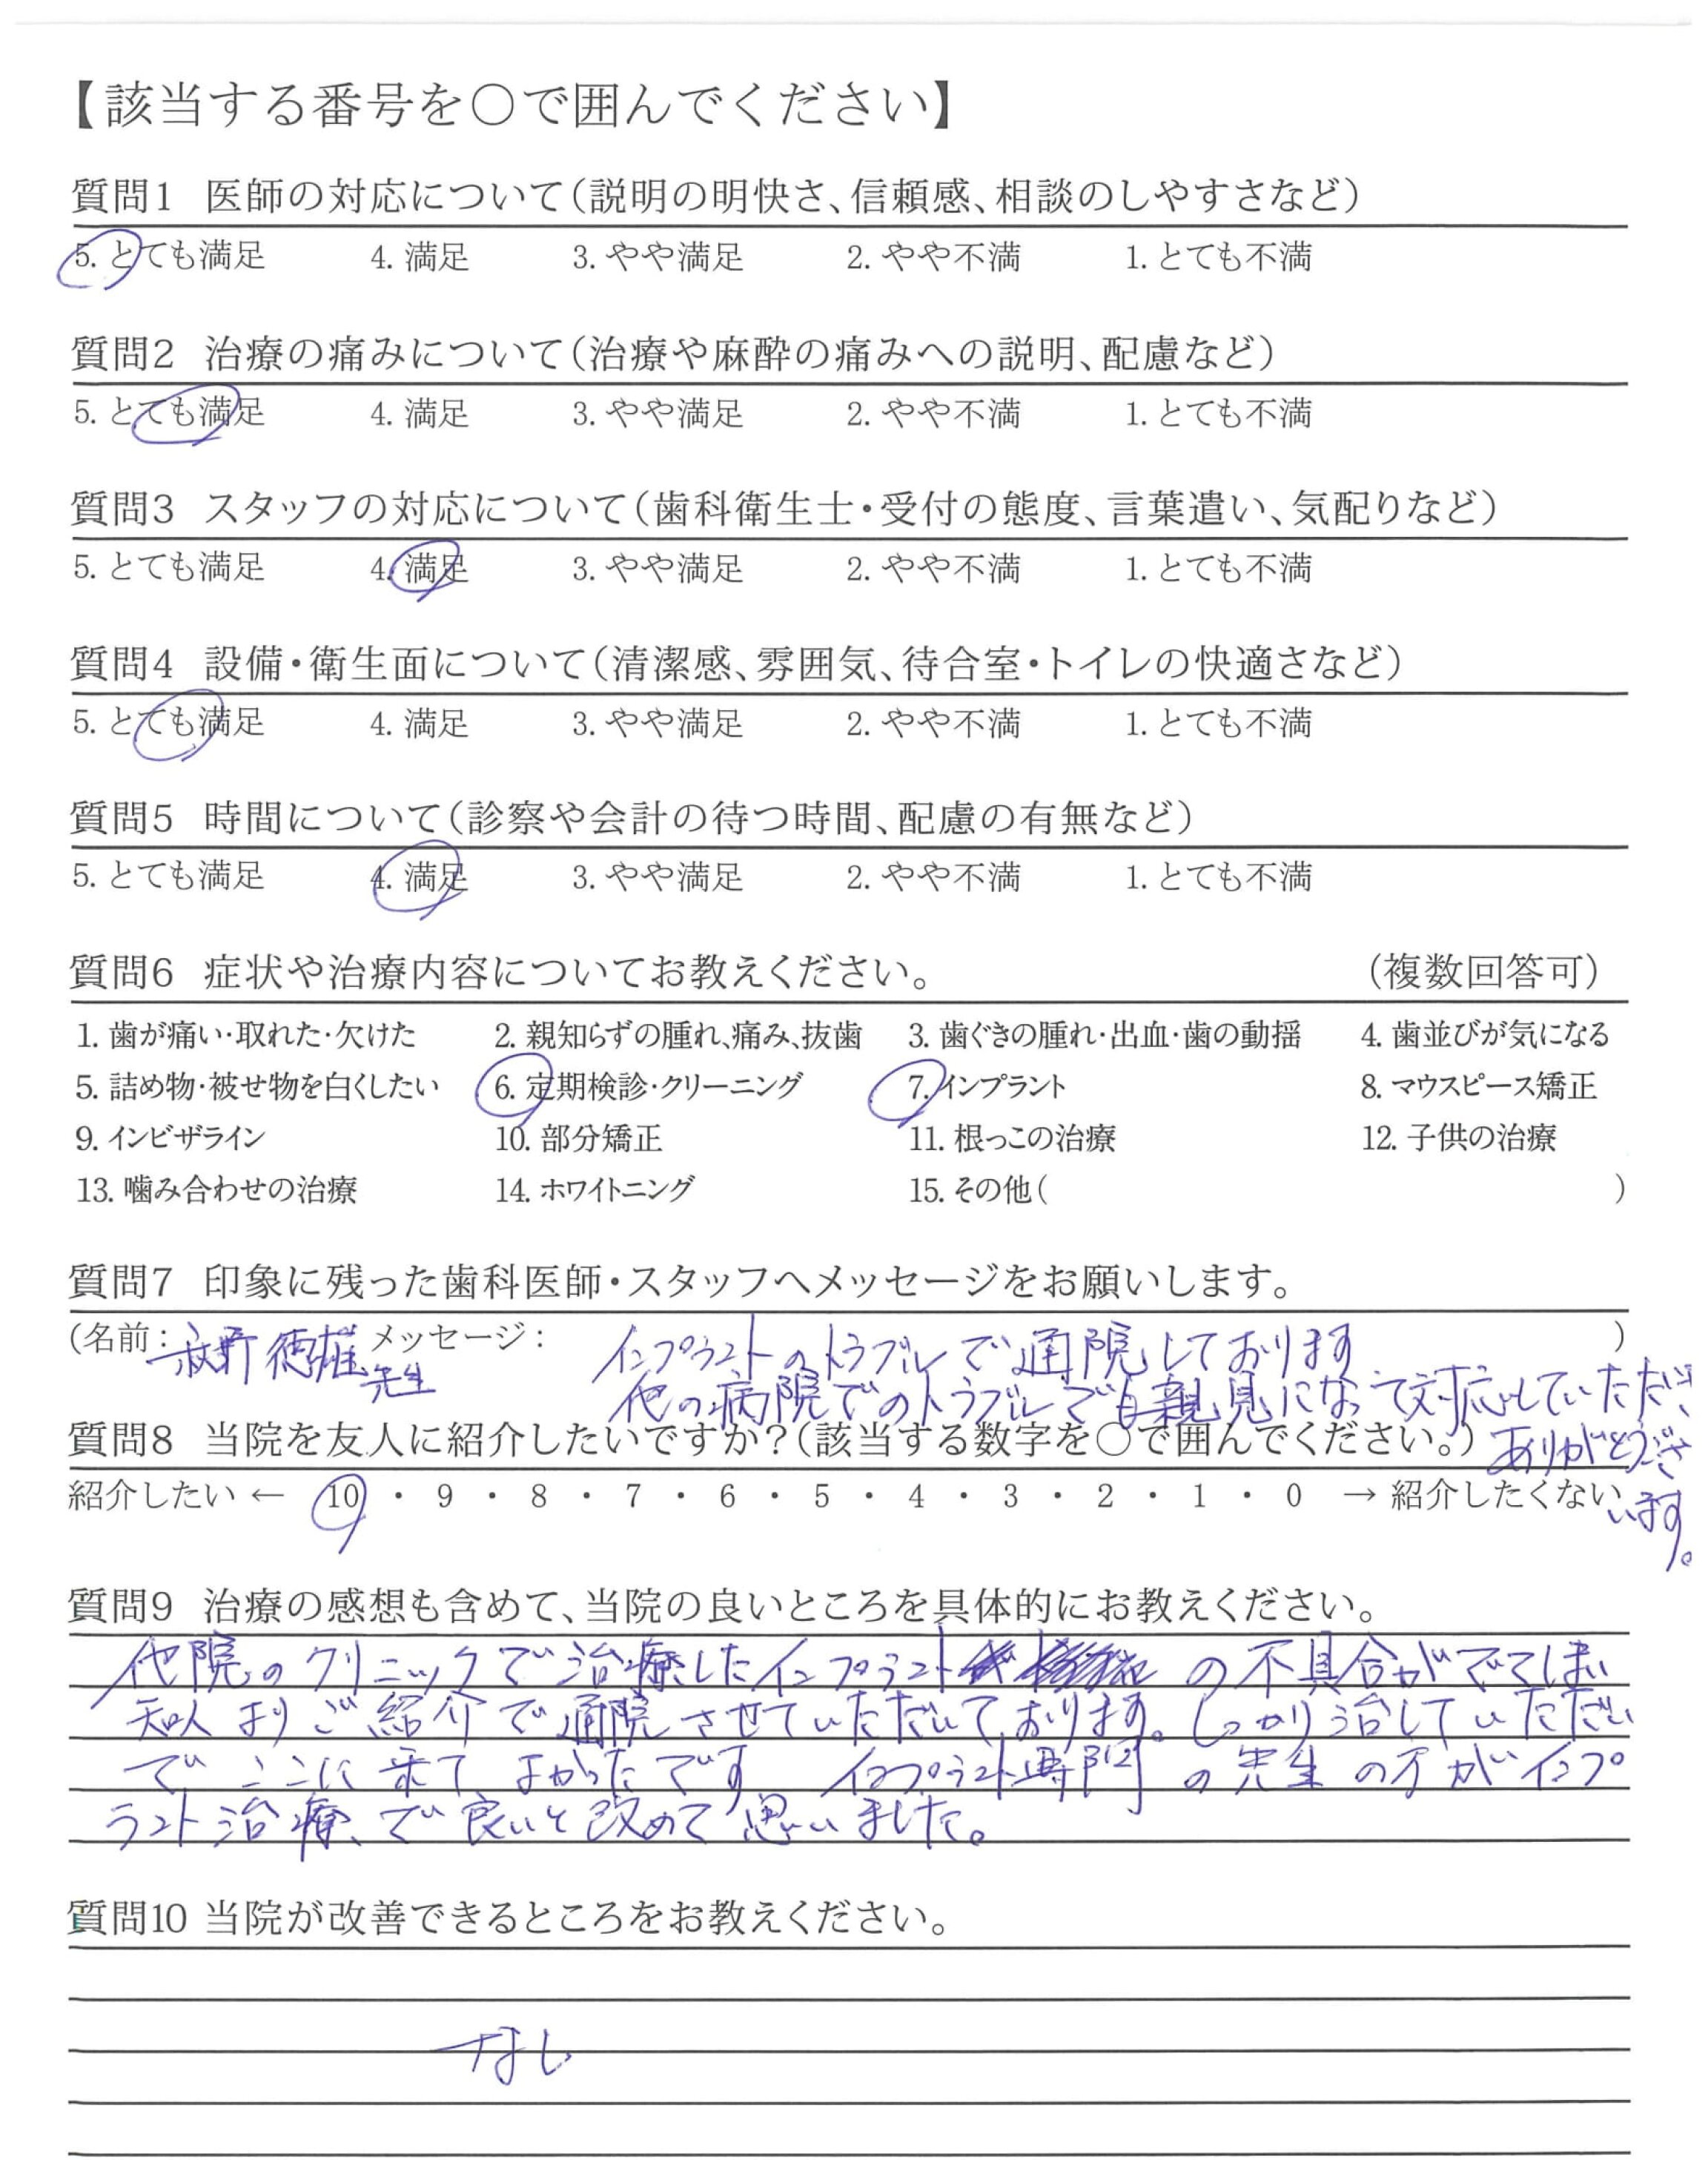 【該当する番号を○で囲んでください】
質問1 医師の対応について(説明の明快さ、信頼感、相談のしやすさなど)
5. とても満足 4. 満足 3. やや満足 2. やや不満 1. とても不満
質問2 治療の痛みについて(治療や麻酔の痛みへの説明、配慮など)
5. とても満足 4. 満足 3. やや満足 2. やや不満 1. とても不満
質問3 スタッフの対応について(歯科衛生士・受付の態度、言葉遣い、気配りなど)
5. とても満足 4. 満足 3. やや満足 2. やや不満 1. とても不満
質問4 設備・衛生面について(清潔感、雰囲気、待合室・トイレの快適さなど)
5. とても満足 4. 満足 3. やや満足 2. やや不満 1. とても不満
質問5 時間について(診察や会計の待つ時間、配慮の有無など)
5. とても満足 4. 満足 3. やや満足 2. やや不満 1. とても不満
質問6 症状や治療内容についてお教えください。 (複数回答可)
1. 歯が痛い・取れた・欠けた 2. 親知らずの腫れ、痛み、抜歯 3. 歯ぐきの腫れ・出血・歯の動揺 4. 歯並びが気になる
5. 詰め物・被せ物を白くしたい 6. 定期検診・クリーニング 7. インプラント 8. マウスピース矯正
9. インビザライン 10. 部分矯正 11. 根っこの治療 12. 子供の治療
13. 噛み合わせの治療 14. ホワイトニング 15. その他( )
質問7 印象に残った歯科医師・スタッフへメッセージをお願いします。
(名前: 徳雄先生 メッセージ: インプラントのトラブルで通院しております )
他の病院でのトラブルでも親見になって対応していただき
質問8 当院を友人に紹介したいですか?(該当する数字を○で囲んでください。) ありがとうござ
紹介したい ← 10 ・ 9 ・ 8 ・ 7 ・ 6 ・ 5 ・ 4 ・ 3 ・ 2 ・ 1 ・ 0 → 紹介したくない います。
質問9 治療の感想も含めて、当院の良いところを具体的にお教えください。
他院のクリニックで治療したインプラント の不具合がでてしまい
知人よりご紹介で通院させていただいております。しっかり治していただい
で ここに来てよかったです インプラント専門の先生の方がインプ
ラント治療で良いと改めて思いました。
質問10 当院が改善できるところをお教えください。
なし